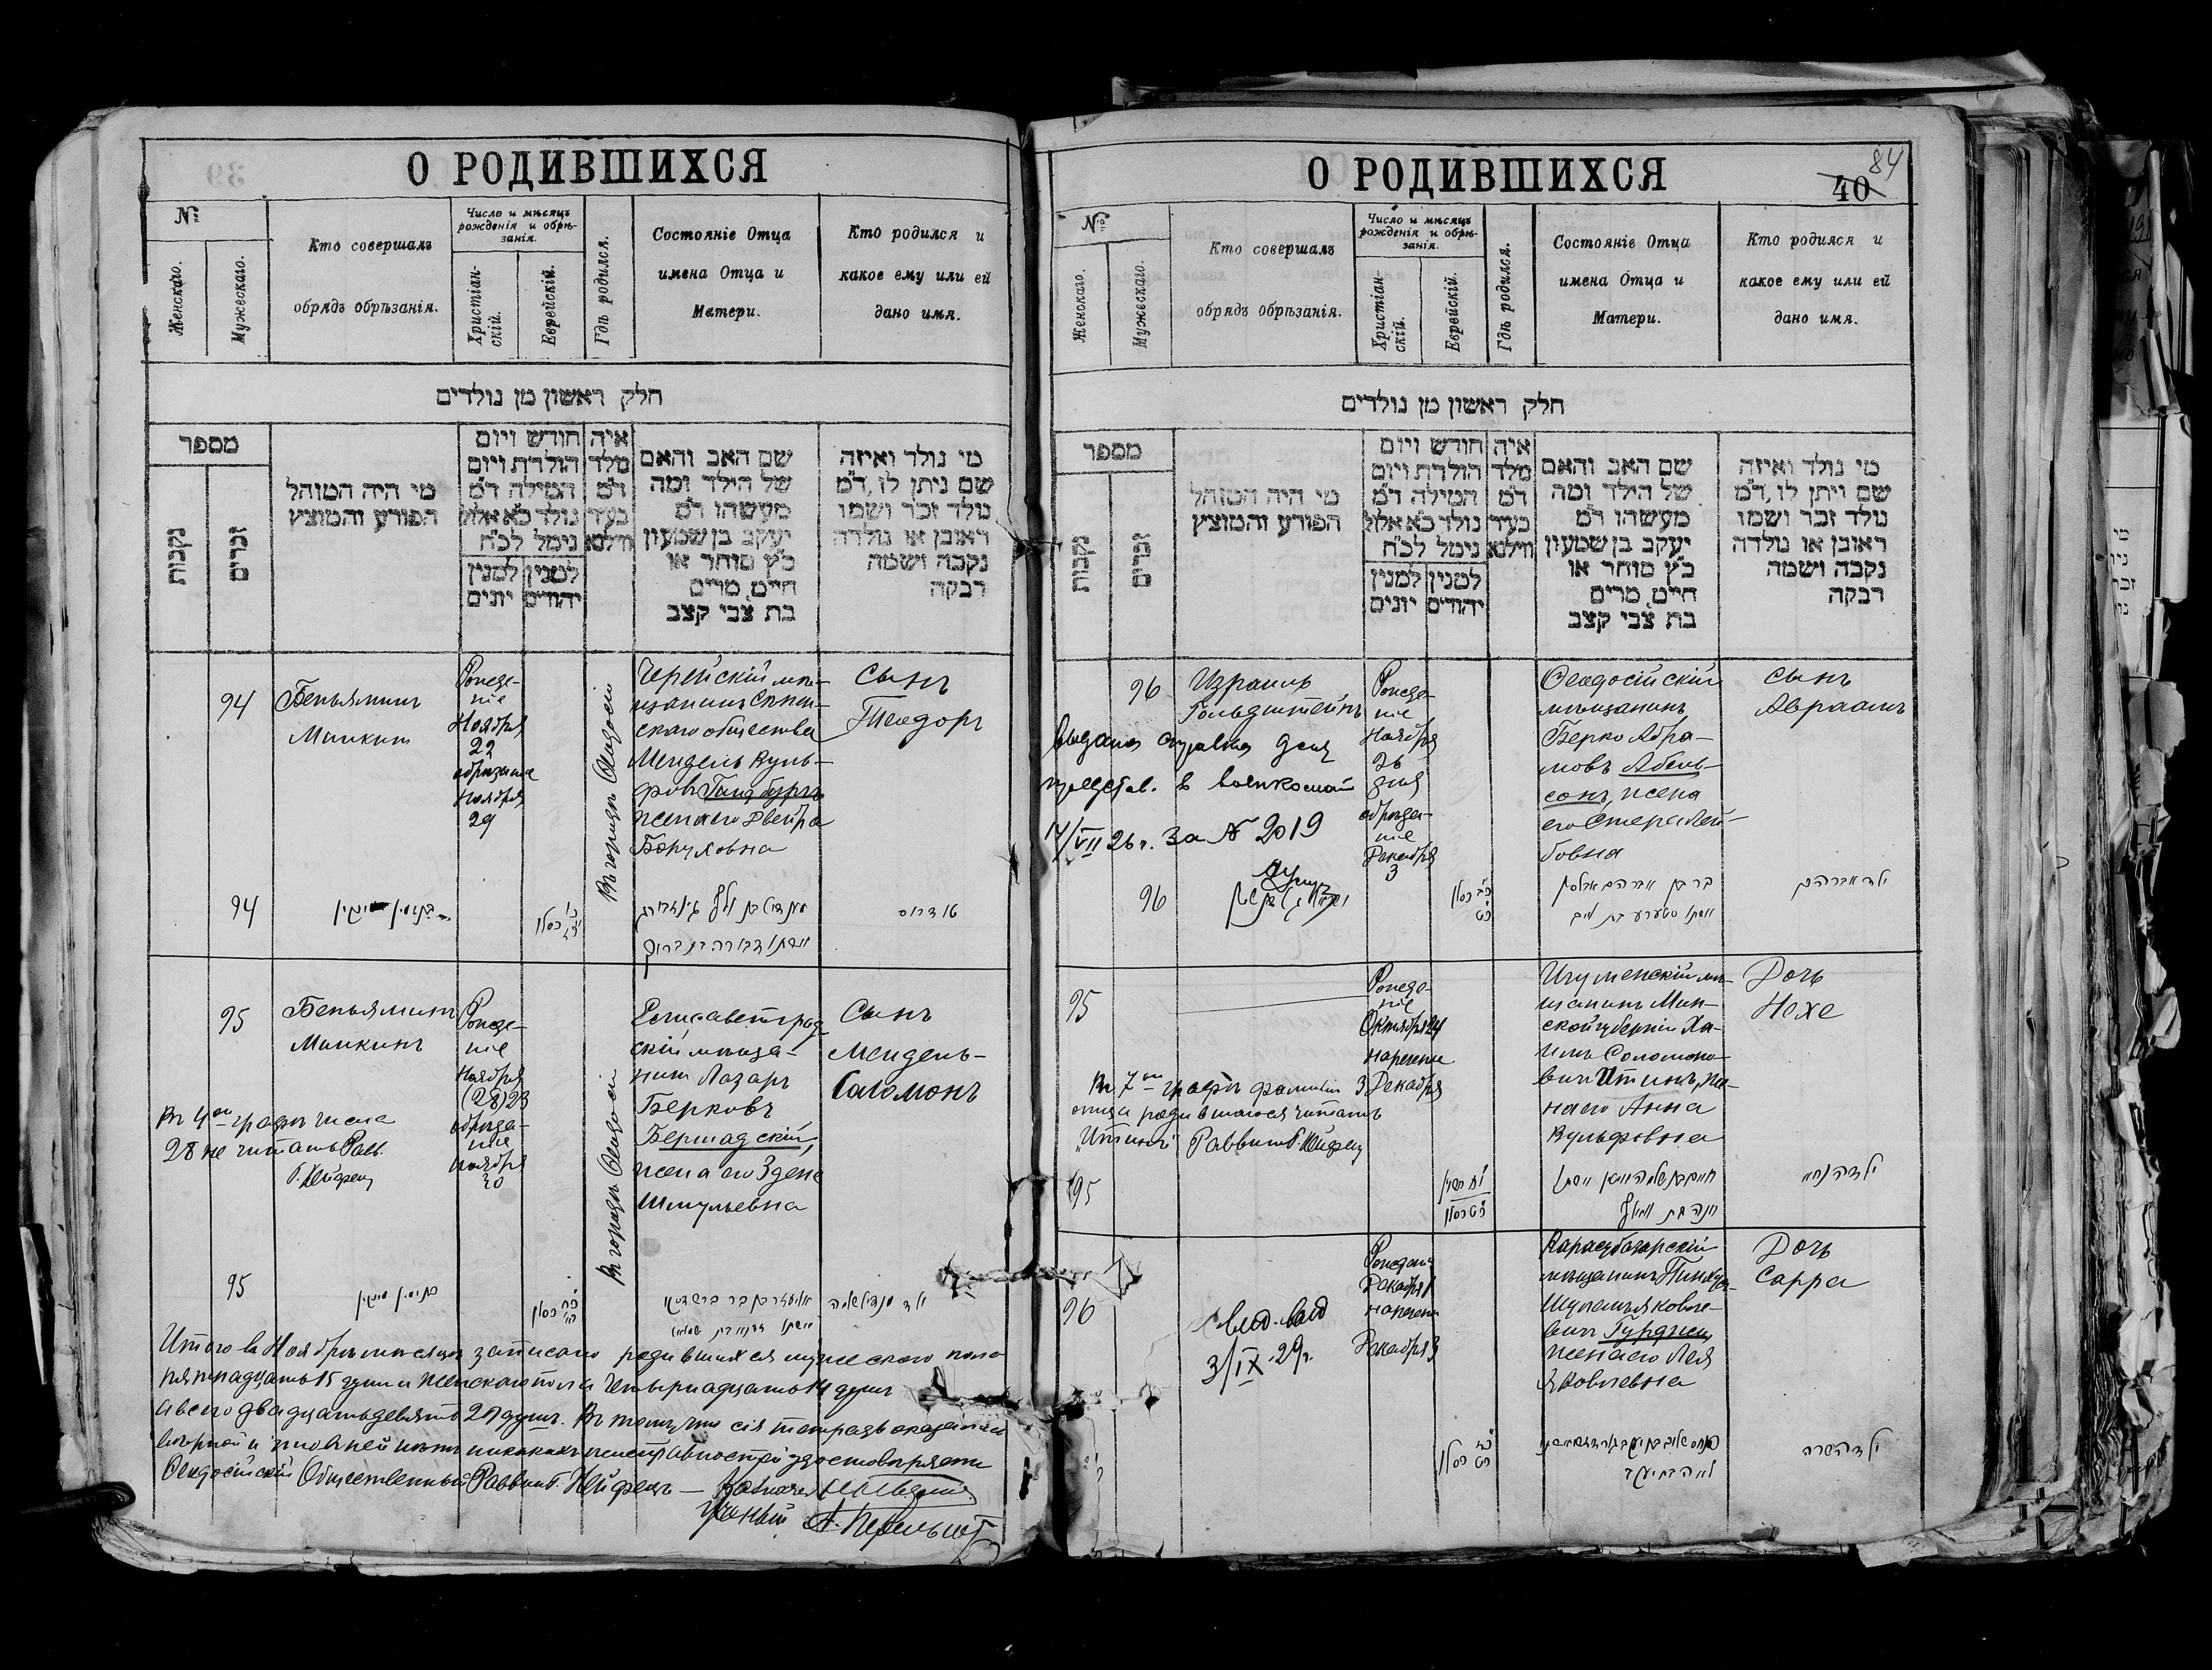 О РОДИВШИХСЯ
39
№
Женскаго.
Мужескаго.
Кто совершалъ
обрядъ обрѣзанія.
Число и мѣсяцъ
рожденія и обрѣ-
занія.
Христіан-
скій.
Еврейскій.
Гдѣ родился.
Состояніе Отца
имена Отца и
Матери.
Кто родился и
какое ему или ей
дано имя.
חלק ראשון מן נולדים
מספר
נקבות
זכרים
מי היה המוהל
הפורע והמוצץ
חודש ויום
הולדת ויום
המילה ד״מ
נולד כ״א אלול
נימל לכ״ח
למנין
יונים
למנין
יהודים
איה
מלד
ד״מ
בעיר
ווילנא
שם האב והאם
של הילד ומה
מעשהו ד״מ
יעקב בן שמעון
כ״ץ סוחר או
חייט, מרים
בת צבי קצב
מי נולד ואיזה
שם ניתן לו, ד״מ
נולד זכר ושמו
ראובן או נולדה
נקבה ושמה
רבקה
94
Беньяминъ
Минкинъ
Рожде-
ніе
Ноября
22
обрѣзаніе
Ноября
29
Въ городѣ Ѳеодосіи
Черейскій мѣ-
щанинъ Сѣннин-
скаго общества
Мендель Вуль-
фовъ Гинзбургъ
жена его Двейра
Боруховна
Сынъ
Теодоръ
94
כסלו
טודרוס
95
Беньяминъ
Минкинъ
Рожде-
ніе
Ноября
(28) 23
обрѣза-
ніе
Ноября
30
Въ городѣ Ѳеодосіи
Елисаветград-
скій мѣща-
нинъ Лазарь
Берковъ
Бершадскій,
жена его Злена
Шмульевна
Сынъ
Мендель-
Соломонъ
Въ 4ой графѣ числа
28 не читать Равв.
Г. Нейфецъ
95
כסלו
Итого въ Ноябрѣ мѣсяцѣ записано родившихся мужескаго пола
пятнадцать 15 душъ и женскаго пола четырнадцать 14 душъ
а всего двадцать девять 29 душъ. Въ томъ, что сія тетрадь оказалась
вѣрной и что въ ней нѣтъ никакихъ неисправностей удостовѣряетъ
Ѳеодосійскій Общественный Раввинъ Г. Нейфецъ —
Ученый
О РОДИВШИХСЯ
40
84
№
Женскаго.
Мужескаго.
Кто совершалъ
обрядъ обрѣзанія.
Число и мѣсяцъ
рожденія и обрѣ-
занія.
Христіан-
скій.
Еврейскій.
Гдѣ родился.
Состояніе Отца
имена Отца и
Матери.
Кто родился и
какое ему или ей
дано имя.
חלק ראשון מן נולדים
מספר
נקבות
זכרים
מי היה המוהל
הפורע והמוצץ
חודש ויום
הולדת ויום
המילה ד״מ
נולד כ״א אלול
נימל לכ״ח
למנין
יונים
למנין
יהודים
איה
מלד
ד״מ
בעיר
ווילנא
שם האב והאם
של הילד ומה
מעשהו ד״מ
יעקב בן שמעון
כ״ץ סוחר או
חייט, מרים
בת צבי קצב
מי נולד ואיזה
שם ניתן לו, ד״מ
נולד זכר ושמו
ראובן או נולדה
נקבה ושמה
רבקה
96
Израиль
Гольдштейнъ
Рожде-
ніе
Ноября
26
дня
обрѣза-
ніе
Декабря
3
Ѳеодосійскій
мѣщанинъ
Берко Абра-
мовъ Абель-
сонъ, жена
его Стера Лей-
бовна
Сынъ
Авраамъ
Выдана справка для
представ. в военкомат
14/VII 26 г. За № 2019
96
כסלו
ילד אברהם
95
Рожде-
ніе
Октября 24
нареченіе
3 Декабря
Игуменскій мѣ-
щанинъ Мин-
ской губерніи Ха-
имъ Соломоно-
вичъ Итинъ, же-
на его Анна
Вульфовна
Дочь
Нехе
Въ 7ой графѣ фамилію
отца родившагося читать
„Итинъ" Раввинъ Г. Нейфецъ
95
כסלו
96
Рожденіе
Декабря 1
нареченіе
Декабря 3
Карасубазарскій
мѣщанинъ Пинхусъ-
Шулемъ Яковле-
вичъ Гурджи,
жена его Лея
Яковлевна
Дочь
Сарра
3/IX 29 г.
כסלו
ילדה שרה